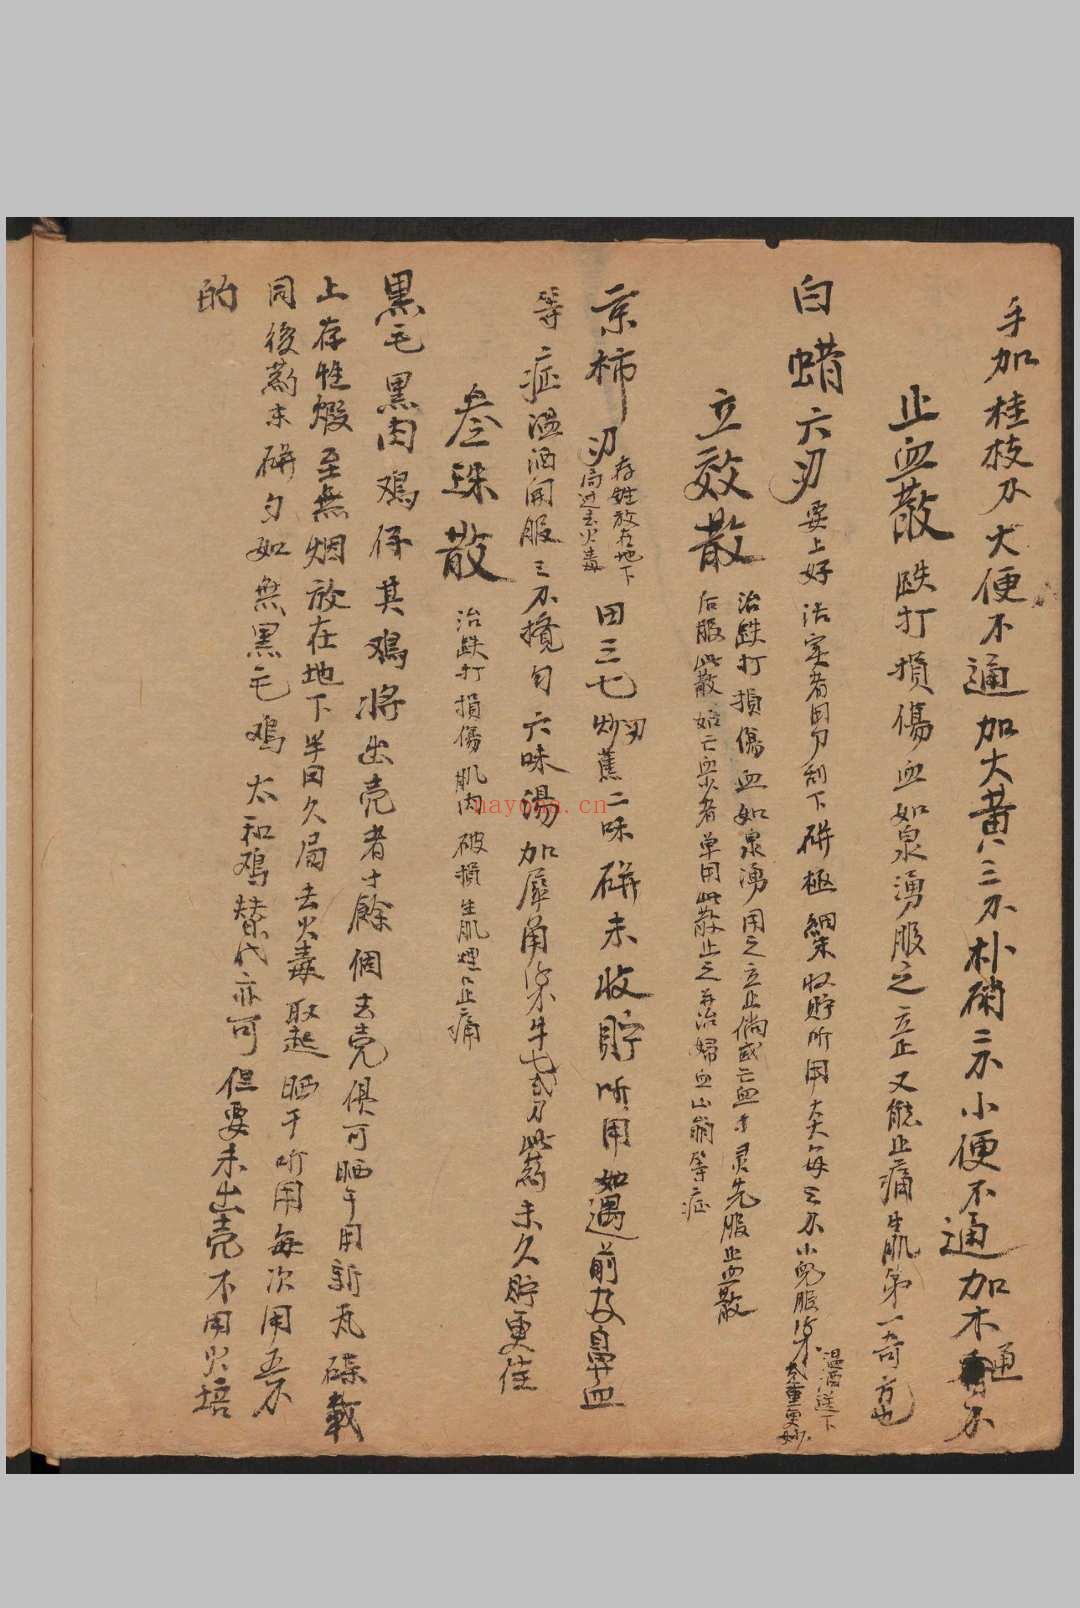 手加桂枝刀大便不通加大黄三刀朴硝二刀小便不通加木通刀
止血散跌打損傷血如泉湧服之立止又能止痛生肌第一奇方也
白蜡六刃要上好活実者用刀刮下研極細末收貯所用大夫每三刀小児服
温酒送下
童更妙
立效散治跌打損傷血如泉湧用之立止倘或亡血先服止血散
后服此散如亡血少者单用此散止之并治婦血山崩等症
京柿刃存姓放在地下
局过去火毒
田三七刃炒蕉二味研末收貯所用如遇前及鼻血
等症温酒開服三刀攪匀六味湯加犀角牛七弍刀此药末久貯更佳
叁珠散治跌打損傷肌肉破損生肌止痛
黒毛黒肉鳮仔其鳮將出壳者十餘個去壳俱可晒干用新瓦碟載
上存性煅至無烟放在地下半日久局去火毒取起晒干所用每次用五刀
同後药末研匀如無黒毛鳮太和鳮替代亦可但要未出壳不用火培
的
nayona.cn